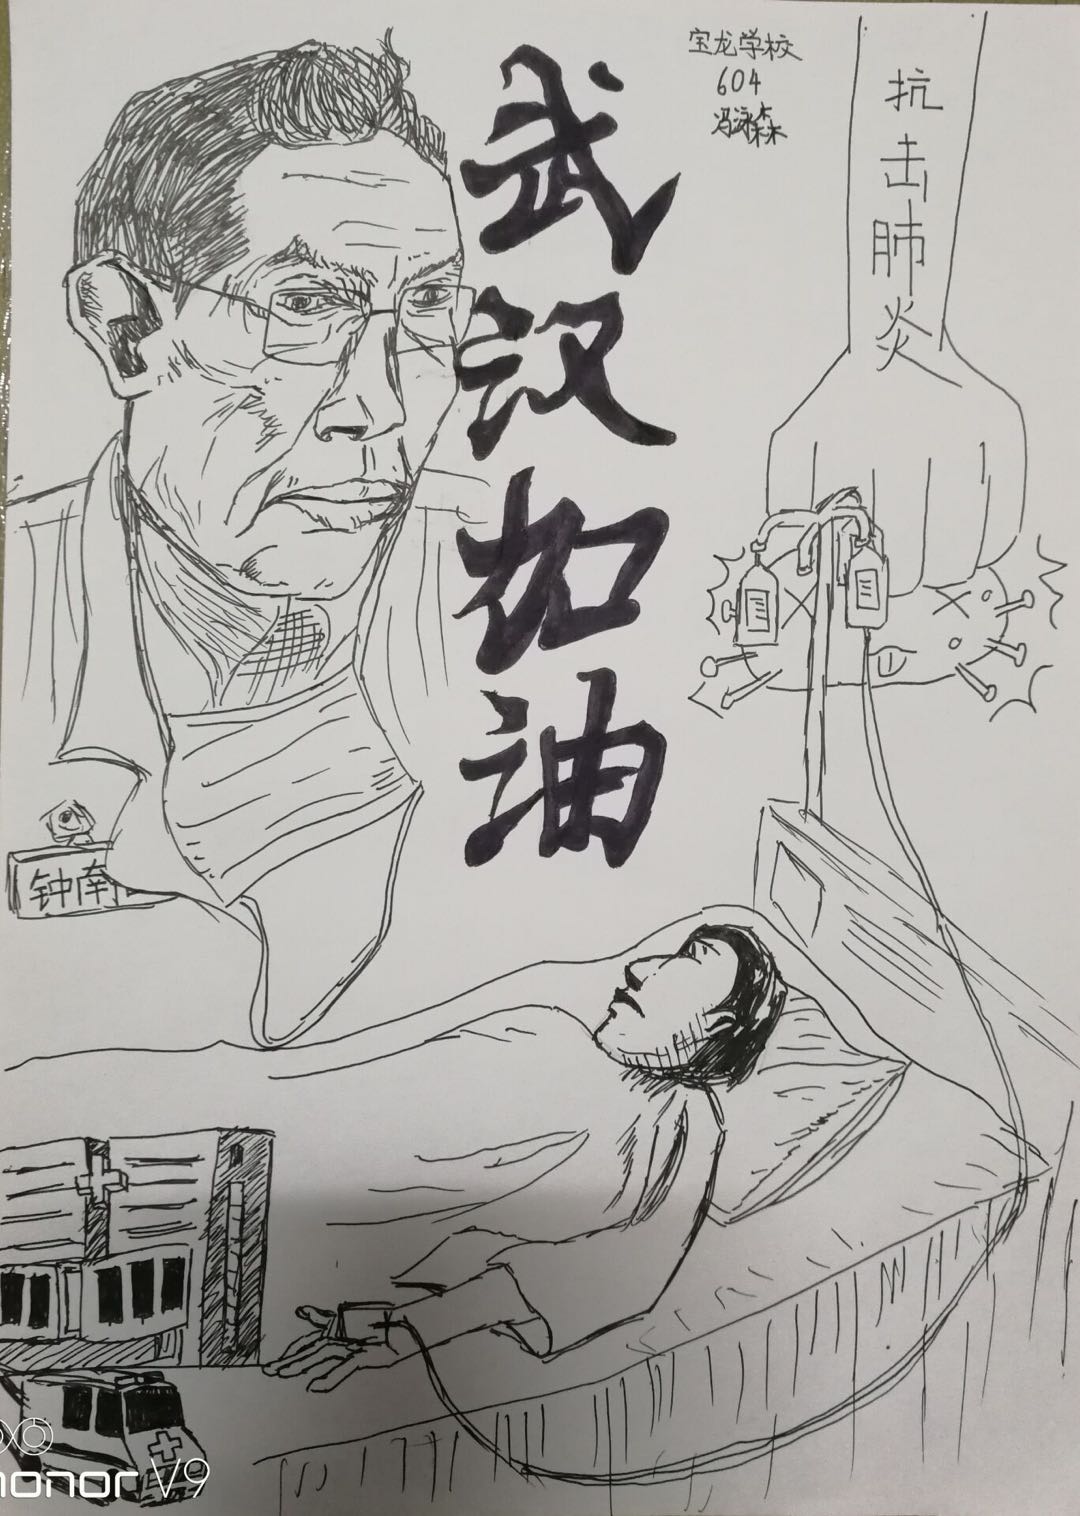 宝龙学校
604
冯泳森
武汉加油
抗击肺炎
钟南
honor V9